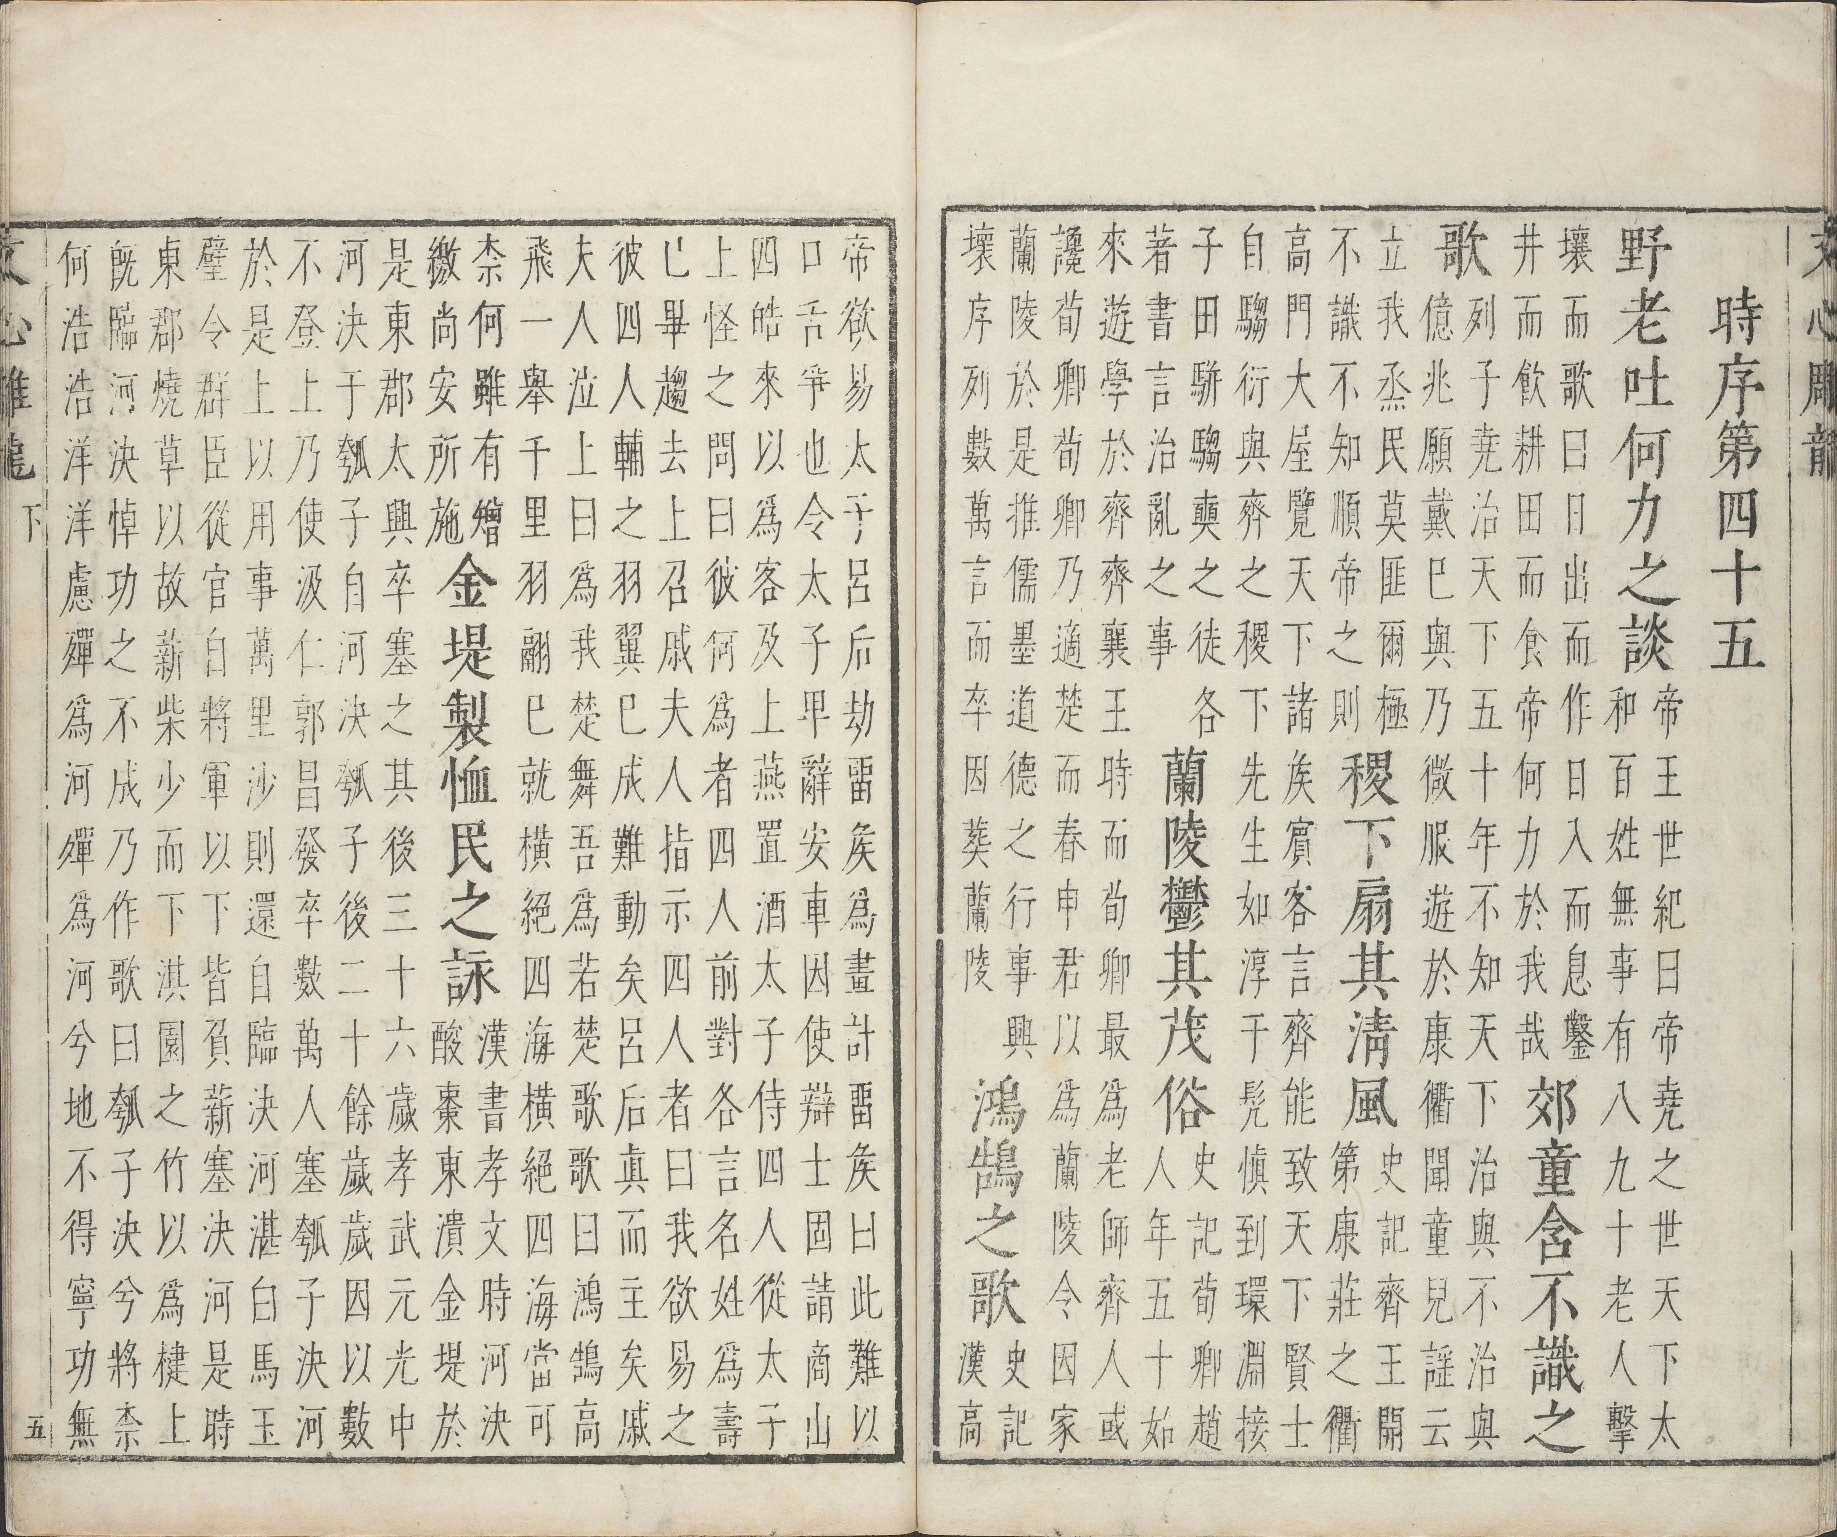 文心雕龍
時序第四十五
野老吐何力之談
帝王世紀曰帝堯之世天下太
和百姓無事有八九十老人擊
壤而歌曰日出而作日入而息鑿
井而飲耕田而食帝何力於我哉
郊童含不識之
歌
列子堯治天下五十年不知天下治與不治與
億兆願戴已與乃微服遊於康衢聞童兒謠云
立我烝民莫匪爾極
不識不知順帝之則
稷下扇其清風
史記齊王開
第康莊之衢
高門大屋覽天下諸矦賓客言齊能致天下賢士
自騶衍與齊之稷下先生如淳于髠慎到環淵接
子田駢騶奭之徒各
著書言治亂之事
蘭陵鬱其茂俗
史記荀卿趙
人年五十始
來遊學於齊齊襄王時而荀卿最為老師齊人或
讒荀卿荀卿乃適楚而春申君以為蘭陵令因家
蘭陵於是推儒墨道德之行事興
壞序列數萬言而卒因葬蘭陵
鴻鵠之歌
史記
漢高
帝欲易太子呂后劫畱矦為畫計畱矦曰此難以
口舌爭也令太子卑辭安車因使辯士固請商山
四皓來以為客及上燕置酒太子侍四人從太子
上怪之問曰彼何為者四人前對各言名姓為壽
已畢趨去上召戚夫人指示四人者曰我欲易之
彼四人輔之羽翼已成難動矣呂后真而主矣戚
夫人泣上曰為我楚舞吾為若楚歌歌曰鴻鵠高
飛一舉千里羽翮已就橫絕四海橫絕四海當可
柰何雖有矰
繳尚安所施
金堤製恤民之詠
漢書孝文時河決
酸棗東潰金堤於
是東郡太興卒塞之其後三十六歲孝武元光中
河決于瓠子自河決瓠子後二十餘歲歲因以數
不登上乃使汲仁郭昌發卒數萬人塞瓠子決河
於是上以用事萬里沙則還自臨決河湛白馬玉
璧令群臣從官自將軍以下皆負薪塞決河是時
東郡燒草以故薪柴少而下淇園之竹以為楗上
旣臨河決悼功之不成乃作歌曰瓠子決兮將柰
何浩浩洋洋慮殫為河殫為河兮地不得寧功無
文心雕龍 下 五